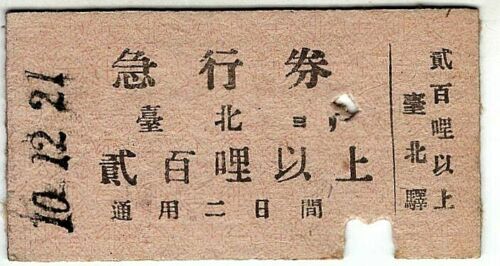 急行券
臺北ヨリ
貳百哩以上
通用二日間
10.12.21
貳百哩以上
臺北驛